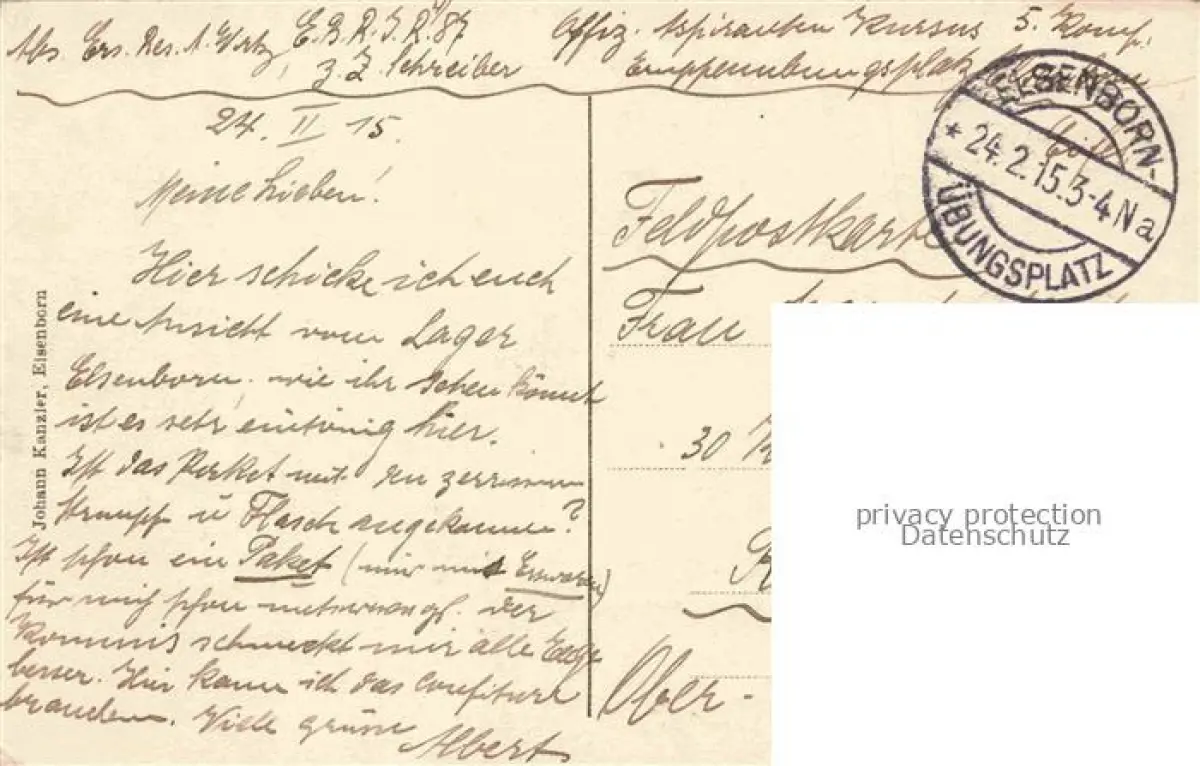 Abs. Ers. Res. A. Wirtz, E. B. R. I. R. 87
z. Z. Schreiber
Offiz. Aspiranten Kursus 5. Komp.
Truppenübungsplatz
ELSENBORN-
* 24.2.15.3-4 N a
ÜBUNGSPLATZ
24. II 15.
Meine Lieben!
Hier schicke ich euch
eine Ansicht vom Lager
Elsenborn, wie ihr sehen könnt
ist es sehr eintönig hier.
Ist das Packet mit den zerrissenen
Strümpf u Flasche angekommen?
Ist schon ein Paket (nur mit Esswaren)
für mich schon unterwegs. der
Kommis schmeckt mir alle Tage
besser. Hier kann ich das Confiture
brauchen. Viele grüsse
Albert
Johann Kanzler, Elsenborn
Feldpostkarte
Frau
30
Ober-
privacy protection
Datenschutz